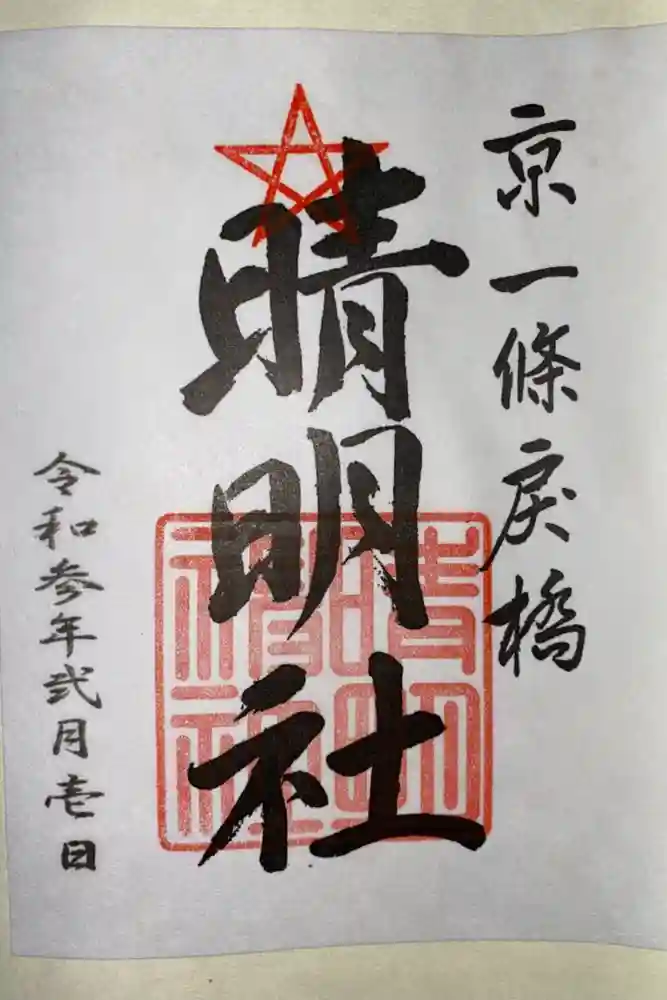 京一條戻橋
晴明社
令和参年弐月壱日